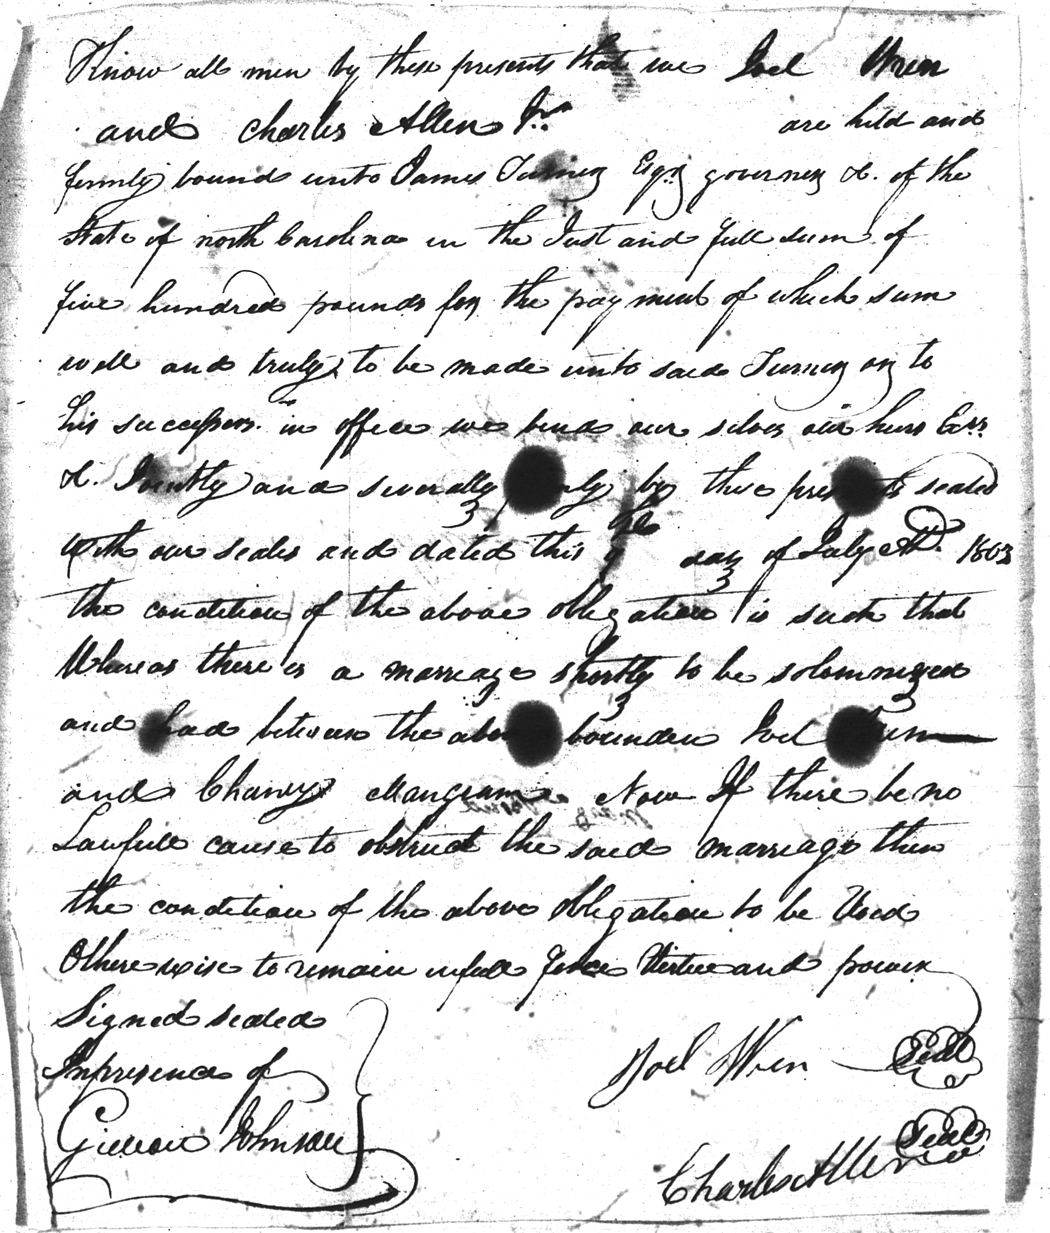 Know all men by these presents that we Joel Wren
and Charles Allen Jr. are held and
firmly bound unto James Turner Esqr governer &. of the
State of north Carolina in the Just and full sum of
five hundred pounds for the payment of which sum
well and truly to be made unto said Turner or to
his successors in office we bind our selves our heirs Exrs.
&. Jointly and severally by these presents sealed
With our seales and dated this day of July AD. 1803
the condition of the above obligation is such that
Whereas there is a marriage shortly to be solomnized
and had between the above bounden Joel Wren
and Chaney Mangram Now If there be no
Lawfull cause to obstruct the said marriage then
the condition of the above obligation to be Void
Otherewise to remain in full force Virtue and power
Signed sealed
In presence of
Joel Wren Seal
Johnson
Charles Allen Seal